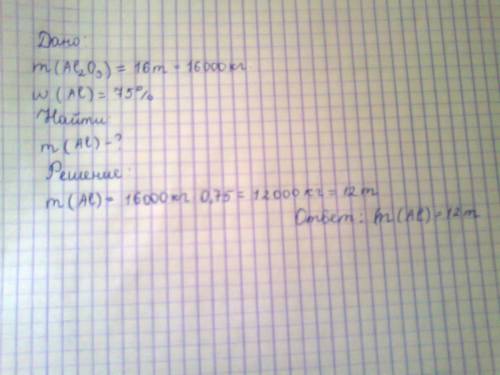 Дано:
m(Al₂O₃) = 16т = 16000кг
w(Al) = 75%
Найти:
m(Al) - ?
Решение:
m(Al) = 16000кг 0,75 = 12000кг = 12т
Ответ: m(Al) = 12т